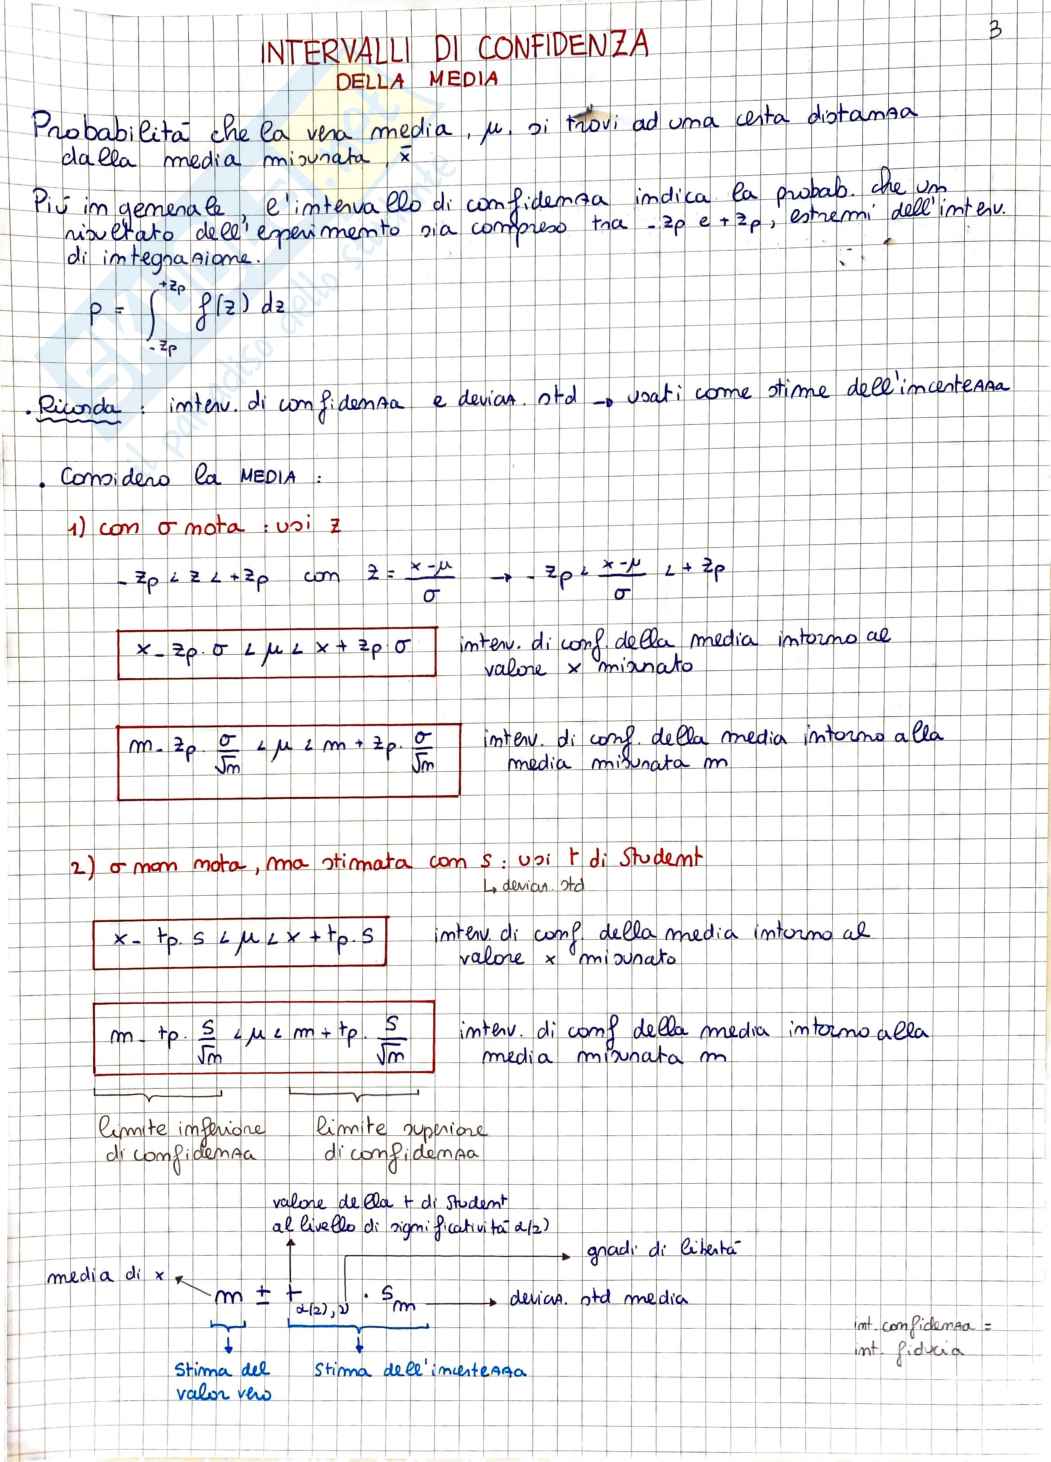 3
INTERVALLI DI CONFIDENZA
DELLA MEDIA
Probabilità che la vera media, μ, si trovi ad una certa distanza
dalla media misurata, x̄
Più in generale, l'intervallo di confidenza indica la probab. che un
risultato dell'esperimento sia compreso tra -zp e +zp, estremi dell'interv.
di integrazione.
p = ∫ f(z) dz
+zp
-zp
. Ricorda : interv. di confidenza e deviaz. std → usati come stime dell'incertezza
. Considero la MEDIA :
1) con σ nota : usi z
-zp < z < +zp con z = (x-μ)/σ → -zp < (x-μ)/σ < +zp
x - zp · σ < μ < x + zp · σ interv. di conf. della media intorno al
valore x misurato
m - zp · σ/√n < μ < m + zp · σ/√n interv. di conf. della media intorno alla
media misurata m
2) σ non nota, ma stimata con s : usi t di Student
↳ deviaz. std
x - tp · s < μ < x + tp · s interv. di conf. della media intorno al
valore x misurato
m - tp · s/√n < μ < m + tp · s/√n interv. di conf della media intorno alla
media misurata m
limite inferiore limite superiore
di confidenza di confidenza
valore della t di Student
al livello di significatività α(2)
gradi di libertà
media di x
m ± t α(2), ν · s m → deviaz. std media
int. confidenza =
int. fiducia
Stima del Stima dell'incertezza
valor vero
il paradiso dello studente